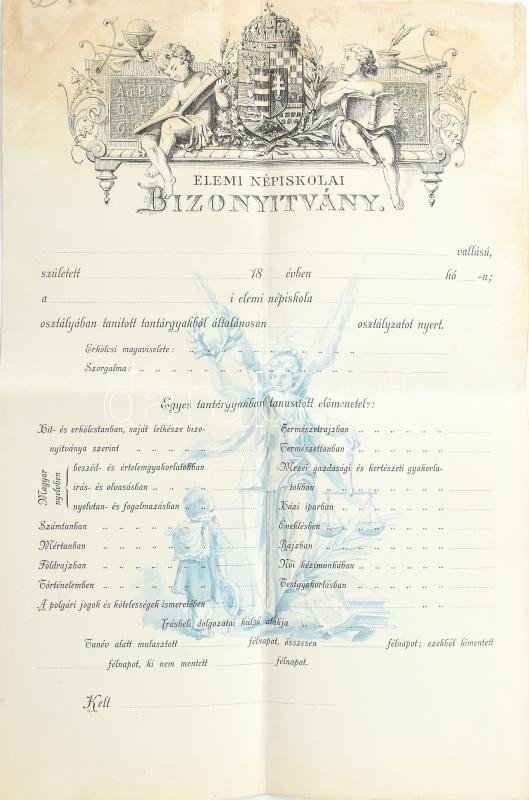 Aa Bb C
1 2 3
ELEMI NÉPISKOLAI
BIZONYITVÁNY.
vallású,
született 18 évben hó -n;
a i elemi népiskola
osztályában tanított tantárgyakból általánosan osztályzatot nyert.
Erkölcsi magaviselete:
Szorgalma:
Egyes tantárgyakban tanusított előmenetele:
Hit- és erkölcstanban, saját lelkésze bizo-
nyítványa szerint
Magyar nyelvben
beszéd- és értelemgyakorlatokban
irás- és olvasásban
nyelvtan- és fogalmazásban
Számtanban
Mértanban
Földrajzban
Történelemben
A polgári jogok és kötelességek ismeretében
Természetrajzban
Természettanban
Mezei gazdasági és kertészeti gyakorla-
tokban
Házi iparban
Éneklésben
Rajzban
Női kézimunkában
Testgyakorlásban
Irásbeli dolgozatai külső alakja
Tanév alatt mulasztott félnapot, összesen félnapot; ezekből kimentett
félnapot, ki nem mentett félnapot.
Kelt